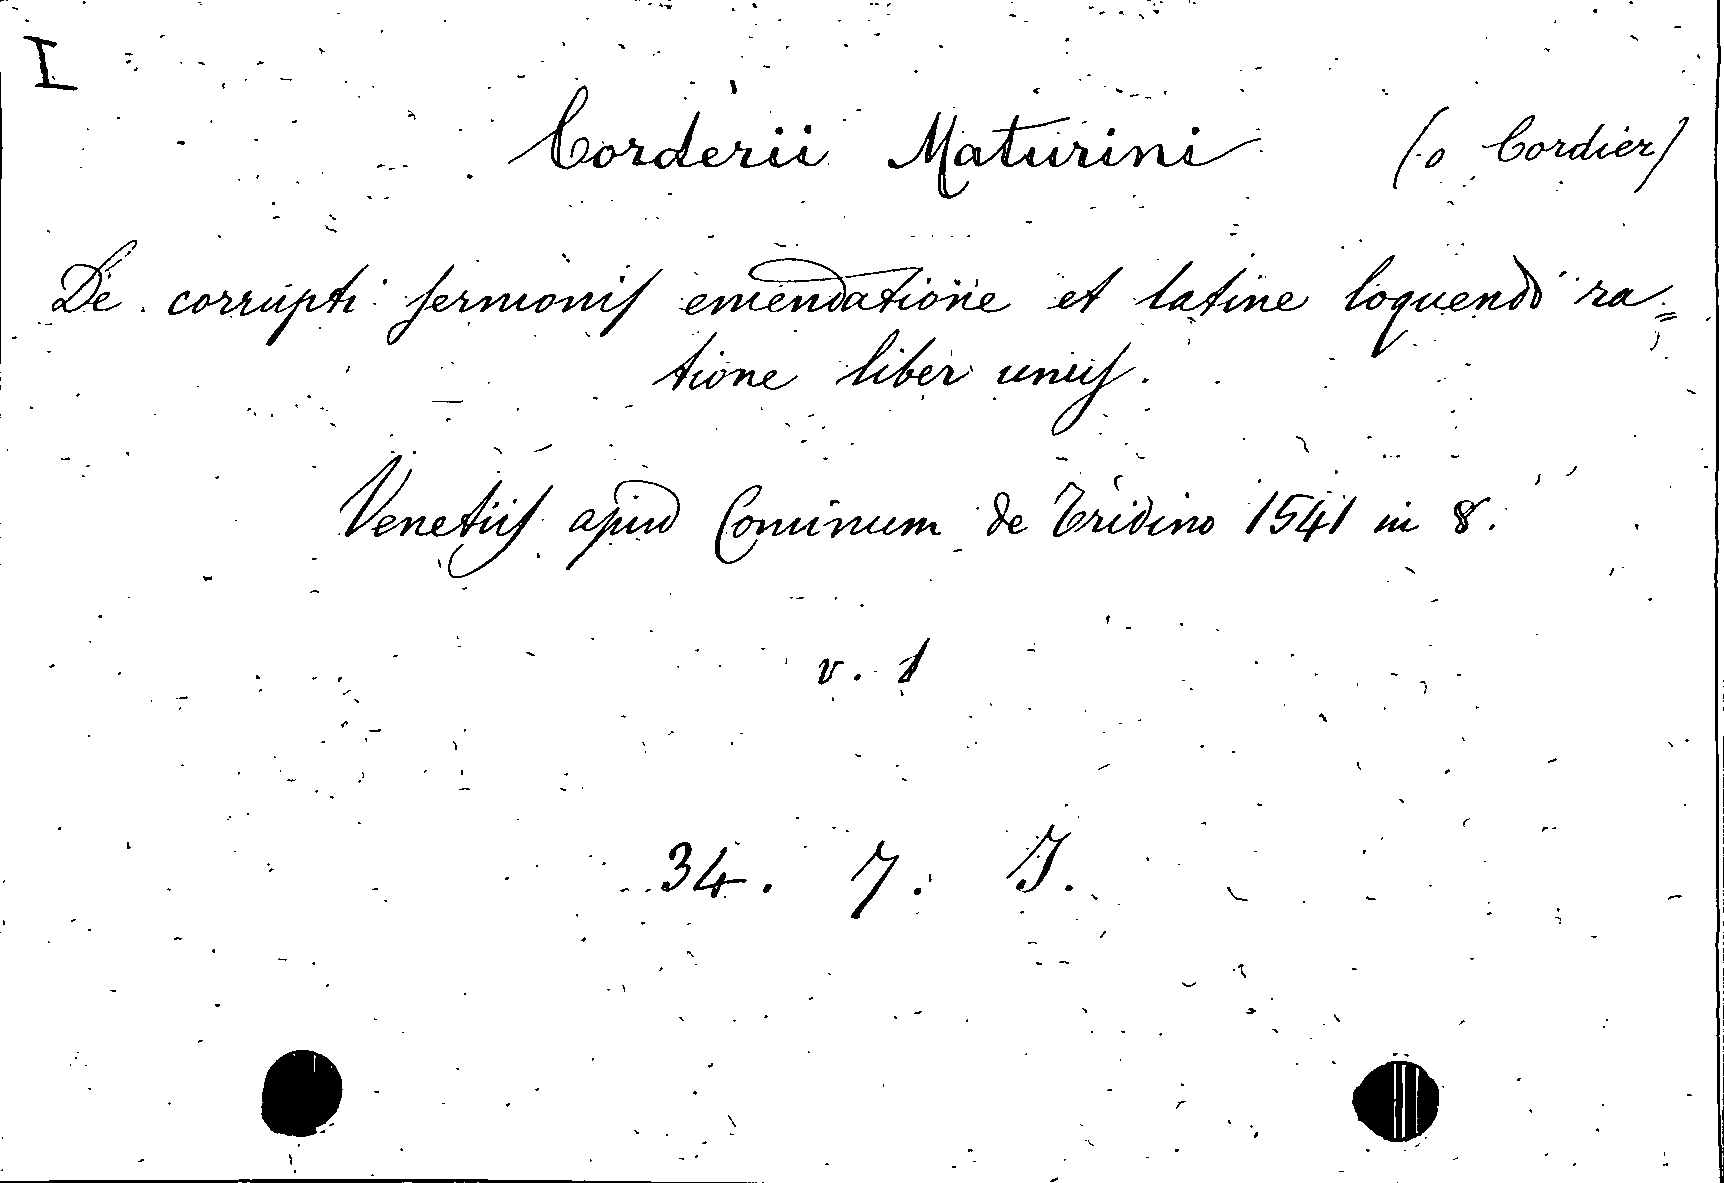 I
Corderii Maturini (o Cordier)
De corrupti sermonis emendatione et latine loquendi ra=
tione liber unus.
Venetiis apud Cominum de Tridino 1541 in 8.
v. 1
34. 7. J.